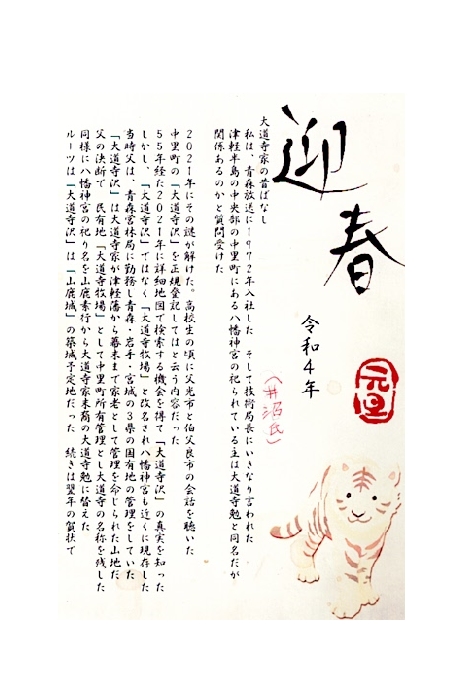 迎春
令和4年
元旦
(井沼氏)
大道寺家の昔ばなし
私は、青森放送に1972年入社した そして技術局長にいきなり言われた
津軽半島の中央部の中里町にある八幡神宮の祀られている主は大道寺勉と同名だが
関係あるのかと質問受けた
2021年にその謎が解けた。高校生の頃に父光市と伯父良市の会話を聴いた
中里町の「大道寺沢」を正規登記してはと云う内容だった
55年経た2021年に詳細地図で検索する機会を得て「大道寺沢」の真実を知った
しかし、「大道寺沢」ではなく「大道寺牧場」と改名され八幡神宮も近くに現存した
当時父は、青森営林局に勤務し青森・岩手・宮城の3県の国有地の管理をしていた
「大道寺沢」は大道寺家が津軽藩から幕末まで家老として管理を命じられた山地だ
父の決断で 民有地「大道寺牧場」として中里町所有管理とし大道寺の名称を残した
同様に八幡神宮の祀り名を山鹿素行から大道寺家末裔の大道寺勉に替えた
ルーツは「大道寺沢」は「山鹿城」の築城予定地だった 続きは翌年の賀状で